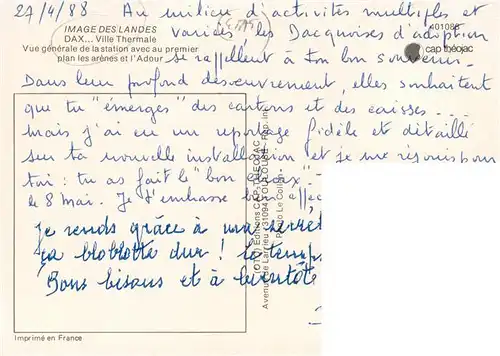 27/4/88
Au milieu d'activités multiples et
variées les Dacquoises d'adoption
se rappellent à ton bon souvenir.
IMAGE DES LANDES
DAX... Ville Thermale
Vue générale de la station avec au premier
plan les arènes et l'Adour
401086
cap théojac
Dans leur profond désœuvrement, elles souhaitent
que tu "émerges" des cartons et des caisses ...
mais j'ai eu un reportage fidèle et détaillé
sur ta nouvelle installation et je me réjouis pour
toi : tu as fait le "bon
le 8 mai. Je t'embrasse bien
Je rends grâce à ma
ça blobotte dur ! le temps
Bons bisous et à bientôt
Imprimé en France
(OTV) Editions CAP-THEOJAC
Avenue de Larrieu (31094) TOULOUSE - Rep. int.
Photo Le Collen